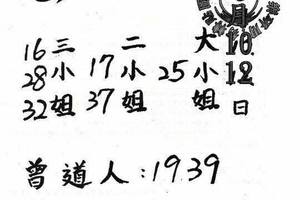 月
10
12
日
大小姐
25
二小姐
17
37
三小姐
16
28
32
曾道人:1939